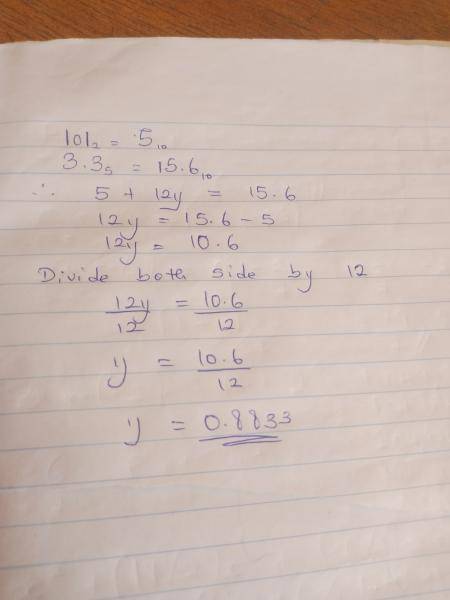 101₂ = 5₁₀
3.3₅ = 15.6₁₀
∴ 5 + 12y = 15.6
12y = 15.6 - 5
12y = 10.6
Divide both side by 12
12y/12 = 10.6/12
y = 10.6/12
y = 0.8833